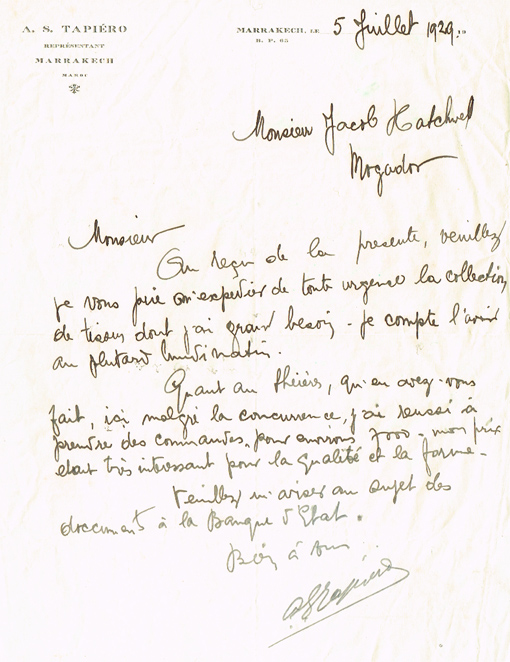 A. S. TAPIÉRO
REPRÉSENTANT
MARRAKECH
MAROC
MARRAKECH, LE 5 Juillet 1929. 19
B. P. 65
Monsieur Jacob Hatchwel
Mogador
Monsieur
Au reçu de la presente, veuillez
je vous prie m'expedier de toute urgence la collection
de tissus dont j'ai grand besoin - je compte l'avoir
au plutard lundi matin.
Quant au théières, qu'en avez-vous
fait, ici malgré la concurrence, j'ai reussi à
prendre des commandes, pour environs 7000 - mon prix
etant très interessant pour la qualité et la forme -
Veuillez m'aviser au sujet des
documents à la Banque d'Etat.
Bien à vous
ASTapiéro